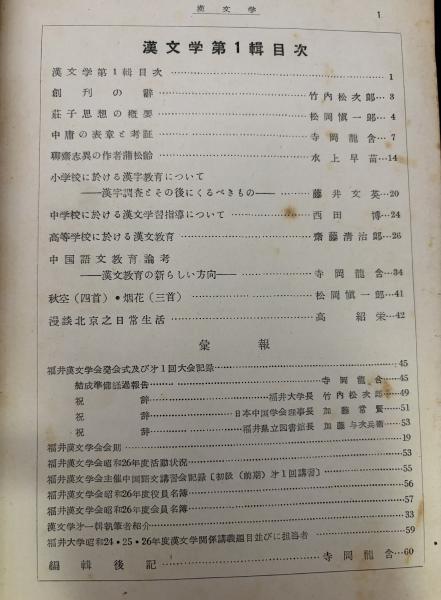 漢文学
1
漢文学第1輯目次
漢文学第1輯目次……1
創刊の辞……竹内松次郎…3
莊子思想の概要……松岡慎一郎…4
中庸の表章と考証……寺岡龍含…7
聊齋志異の作者蒲松齡……水上早苗…14
小学校に於ける漢字教育について
——漢字調査とその後にくるべきもの——……藤井文英…20
中学校に於ける漢文学習指導について……西田博…24
高等学校に於ける漢文教育……齋藤清治郎…26
中国語文教育論考
——漢文教育の新らしい方向——……寺岡龍含…34
秋空(四首)•烟花(三首)……松岡慎一郎…41
漫談北京之日常生活……高紹栄…42
彙報
福井漢文学会発会式及び才1回大会記録……45
結成準備経過報告……寺岡龍含…45
祝辞……福井大学長 竹内松次郎…49
祝辞……日本中国学会理事長 加藤常賢…51
祝辞……福井県立図書館長 加藤与次兵衞…53
福井漢文学会会則……19
福井漢文学会昭和26年度活動状況……53
福井漢文学会主催中国語文講習会記録〔初級(前期)才1回講習〕……55
福井漢文学会昭和26年度役員名簿……56
福井漢文学会昭和26年度会員名簿……57
漢文学才一輯執筆者紹介……33
福井大学昭和24・25・26年度漢文学関係講義題目並びに担当者……59
編輯後記……寺岡龍含…60